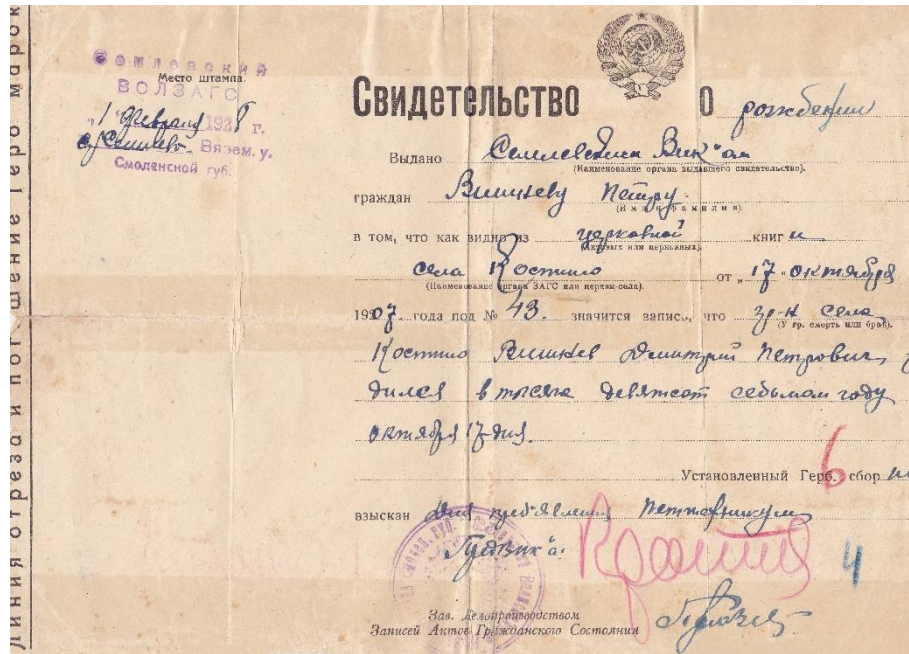 Линия отреза и погашение герб марок
Семлевский
Место штампа.
ВОЛЗАГС
"1" февраля 1928 г.
с. Семлево Вязем. у.
Смоленской губ.
Свидетельство о рождении
Выдано Семлевским Вик'ом
(Наименование органа выдавшего свидетельство).
граждан Вишневу Петру
(Имя и фамилия).
в том, что как видно из церковной книги
(Актовых или церковных).
села Костино от "17" октября
(Наименование органа ЗАГС или церкви-села).
1907 года под № 43. значится запись, что гр-н села
(У гр. смерть или брак).
Костино Вишнев Димитрий Петрович,
дился в тысяча девятсот седьмом году
октября 17 дня.
6
Установленный Герб. сбор
взыскан для
4
Зав. Делопроизводством
Записей Актов Гражданского Состояния